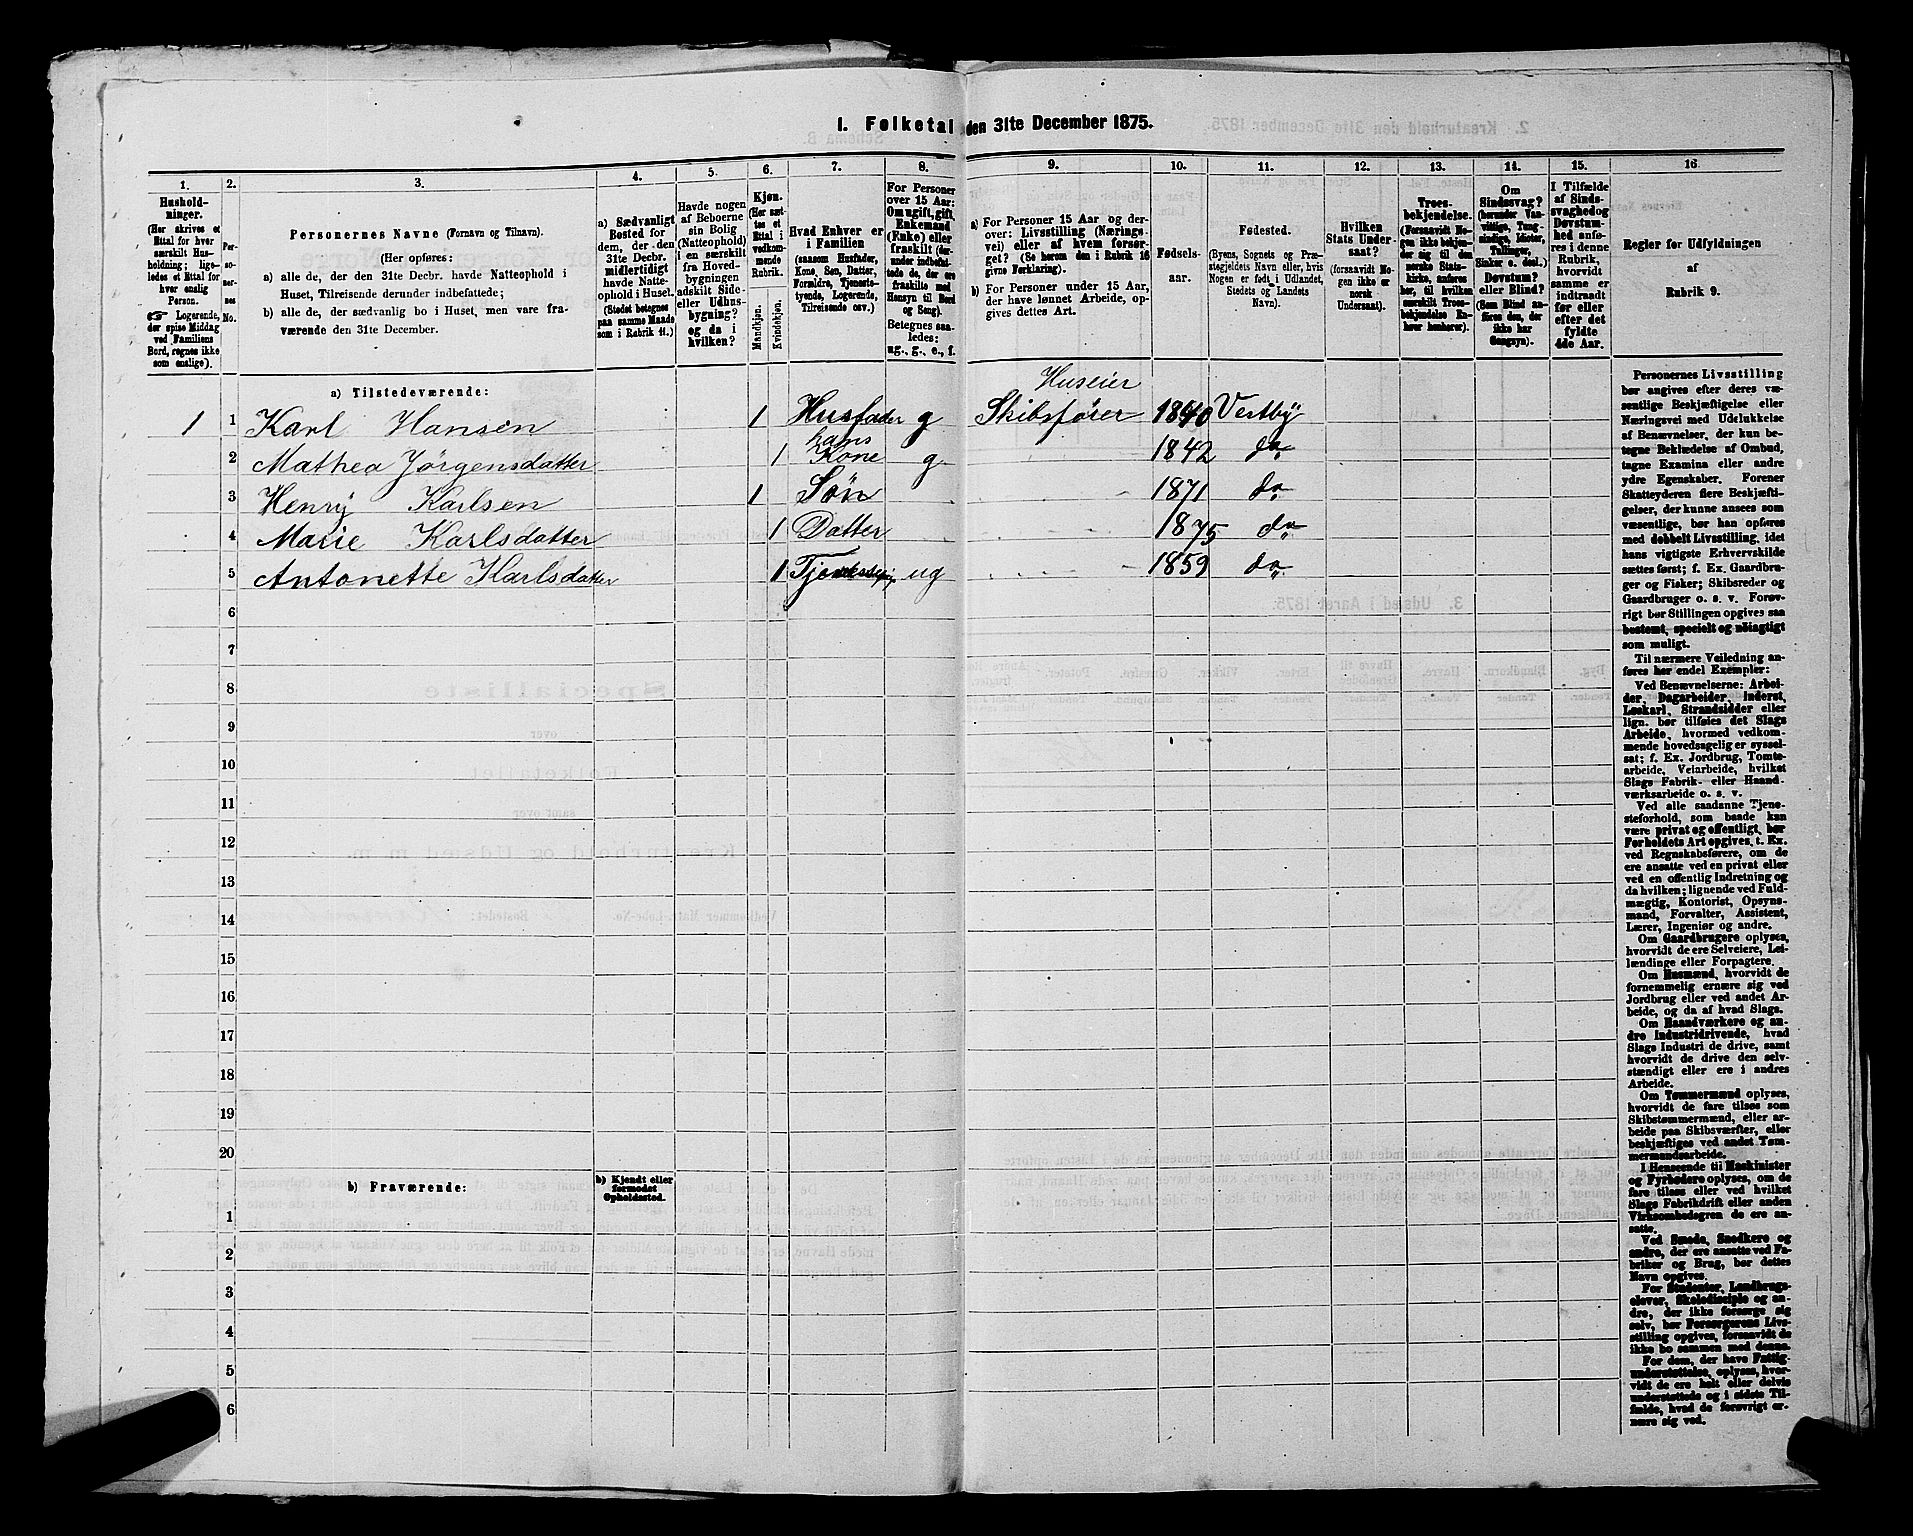 1. Folketal den 31te December 1875.
1. 2. 3. 4. 5. 6. 7. 8. 9. 10. 11. 12. 13. 14. 15. 16
Husholdninger.
(Her skrives et
Ettal for hver
særskilt Husholdning; ligeledes et Ettal for
hver enslig
Person.
Logerende,
der spise Middag
ved Familiens
Bord, regnes ikke
som enslige).
Personernes No.
Personernes Navne (Fornavn og Tilnavn).
(Her opføres:
a) alle de, der den 31te Decbr. havde Natteophold i
Huset, Tilreisende derunder indbefattede;
b) alle de, der sædvanlig bo i Huset, men vare fraværende den 31te December.
a) Sædvanligt
Bosted for
dem, der den
31te Decbr.
midlertidigt
havde Natteophold i Huset.
(Stedet betegnes
paa samme Maade
som i Rubrik 11.)
Havde nogen
af Beboerne
sin Bolig
(Natteophold)
i en særskilt
fra Hovedbygningen
adskilt Side-
eller Udhusbygning?
og da i
hvilken?
Kjøn.
(Her sættes et
Ettal i
vedkommende
Rubrik.
Mandkjøn.
Kvindekjøn.
Hvad Enhver er
i Familien
(saasom Husfader,
Kone, Søn, Datter,
Forældre, Tjenestetyende, Logerende,
Tilreisende osv.)
For Personer
over 15 Aar:
Om ugift, gift,
Enkemand
(Enke) eller
fraskilt (derunder indbefattede de, der ere
fraskilte med
Hensyn til Bord
og Seng).
Betegnes saaledes:
ug., g., e., f.
a) For Personer 15 Aar og derover: Livsstilling (Næringsvei) eller af hvem forsørget? (Se herom den i Rubrik 16
givne Forklaring).
b) For Personer under 15 Aar,
der have lønnet Arbeide, opgives dettes Art.
Fødselsaar.
Fødested.
(Byens, Sognets og Præstegjeldets Navn eller, hvis
Nogen er født i Udlandet,
Stedets og Landets
Navn).
Hvilken
Stats Undersaat?
(forsaavidt Nogen ikke er
norsk
Undersaat).
Troesbekjendelse.
(Forsaavidt Nogen ikke bekjender sig til den
norske Statskirke, anføres
her, til hvilken
særskilt Troesbekjendelse Enhver henhører).
Om
Sindssvag?
(herunder Vanvittige, Tungsindige, Idioter,
Tullinger,
Sinker o. desl.)
Døvstum?
eller Blind?
(Som Blind anføres den, der
ikke har
Gangsyn).
I Tilfælde
af Sindssvaghed og
Døvstumhed anføres i denne
Rubrik,
hvorvidt
samme er
indtraadt
før eller
efter det
fyldte
4de Aar.
Regler for Udfyldningen
af
Rubrik 9.
a) Tilstedeværende:
Huseier
1 1 Karl Hansen 1 Husfader g Skibsfører 1840 Vestby
2 Mathea Jørgensdatter 1 hans Kone g 1842 do
3 Henry Karlsen 1 Søn 1871 do
4 Marie Karlsdatter 1 Datter 1875 do
5 Antonette Karlsdatter 1 ug 1859 do
6
7
8
9
10
11
12
13
14
15
16
17
18
19
20
b) Fraværende:
b) Kjendt eller
formodet
Opholdssted.
1
2
3
4
5
6
Personernes Livsstilling
bør angives efter deres væsentlige Beskjæftigelse eller
Næringsvei med Udelukkelse
af Benævnelser, der kun betegne Beklædelse af Ombud,
tagne Examina eller andre
ydre Egenskaber. Forener
Skatteyderen flere Beskjæftigelser, der kunne ansees som
væsentlige, bør han opføres
med dobbelt Livsstilling, idet
hans vigtigste Erhvervskilde
sættes først; f. Ex. Gaardbruger og Fisker; Skibsreder og
Gaardbruger o. s. v. Forøvrigt bør Stillingen opgives saa
bestemt, specielt og nøiagtigt
som muligt.
Til nærmere Veiledning anføres her endel Exempler:
Ved Benævnelserne: Arbeider, Dagarbeider, Inderst,
Løskarl, Strandsidder eller
lign. bør tilføies det Slags
Arbeide, hvormed vedkommende hovedsagelig er sysselsat; f. Ex. Jordbrug, Tomtearbeide, Veiarbeide, hvilket
Slags Fabrik- eller Haandværksarbeide o. s. v.
Ved alle saadanne Tjenesteforhold, som baade kan
være privat og offentligt, bør
Forholdets Art opgives, t. Ex.
ved Regnskabsførere, om de
ere ansatte ved en privat eller
ved en offentlig Indretning og
da hvilken; lignende ved Fuldmægtig, Kontorist, Opsynsmand, Forvalter, Assistent,
Lærer, Ingeniør og andre.
Om Gaardbrugere oplyses,
hvorvidt de ere Selveiere, Leilændinge eller Forpagtere.
Om Husmænd, hvorvidt de
fornemmelig ernære sig ved
Jordbrug eller ved andet Arbeide, og da af hvad Slags.
Om Haandværkere og andre Industridrivende, hvad
Slags Industri de drive, samt
hvorvidt de drive den selvstændigt eller ere i andres
Arbeide.
Om Tømmermænd oplyses,
hvorvidt de fare tilsøs som
Skibstømmermænd, eller arbeide paa Skibsværfter, eller
beskjæftiges ved andet Tømmermandsarbeide.
I Henseende til Maskinister
og Fyrbødere oplyses, om de
fare tilsøs eller ved hvilket
Slags Fabrikdrift eller anden
Virksomhedsgren de ere ansatte.
Ved Smede, Snedkere og
andre, der ere ansatte ved Fabriker og Brug, bør dettes
Navn opgives.
For Studenter, Landbrugselever, Skoledisciple og andre, der ikke forsørge sig
selv, bør Forsørgerens Livsstilling opgives, forsaavidt de
ikke bo sammen med denne.
For dem, der have Fattigunderstøttelse, oplyses, hvorvidt de ere helt eller delvis
understøttede og i sidste Tilfælde, hvad de forøvrigt ernære sig ved.